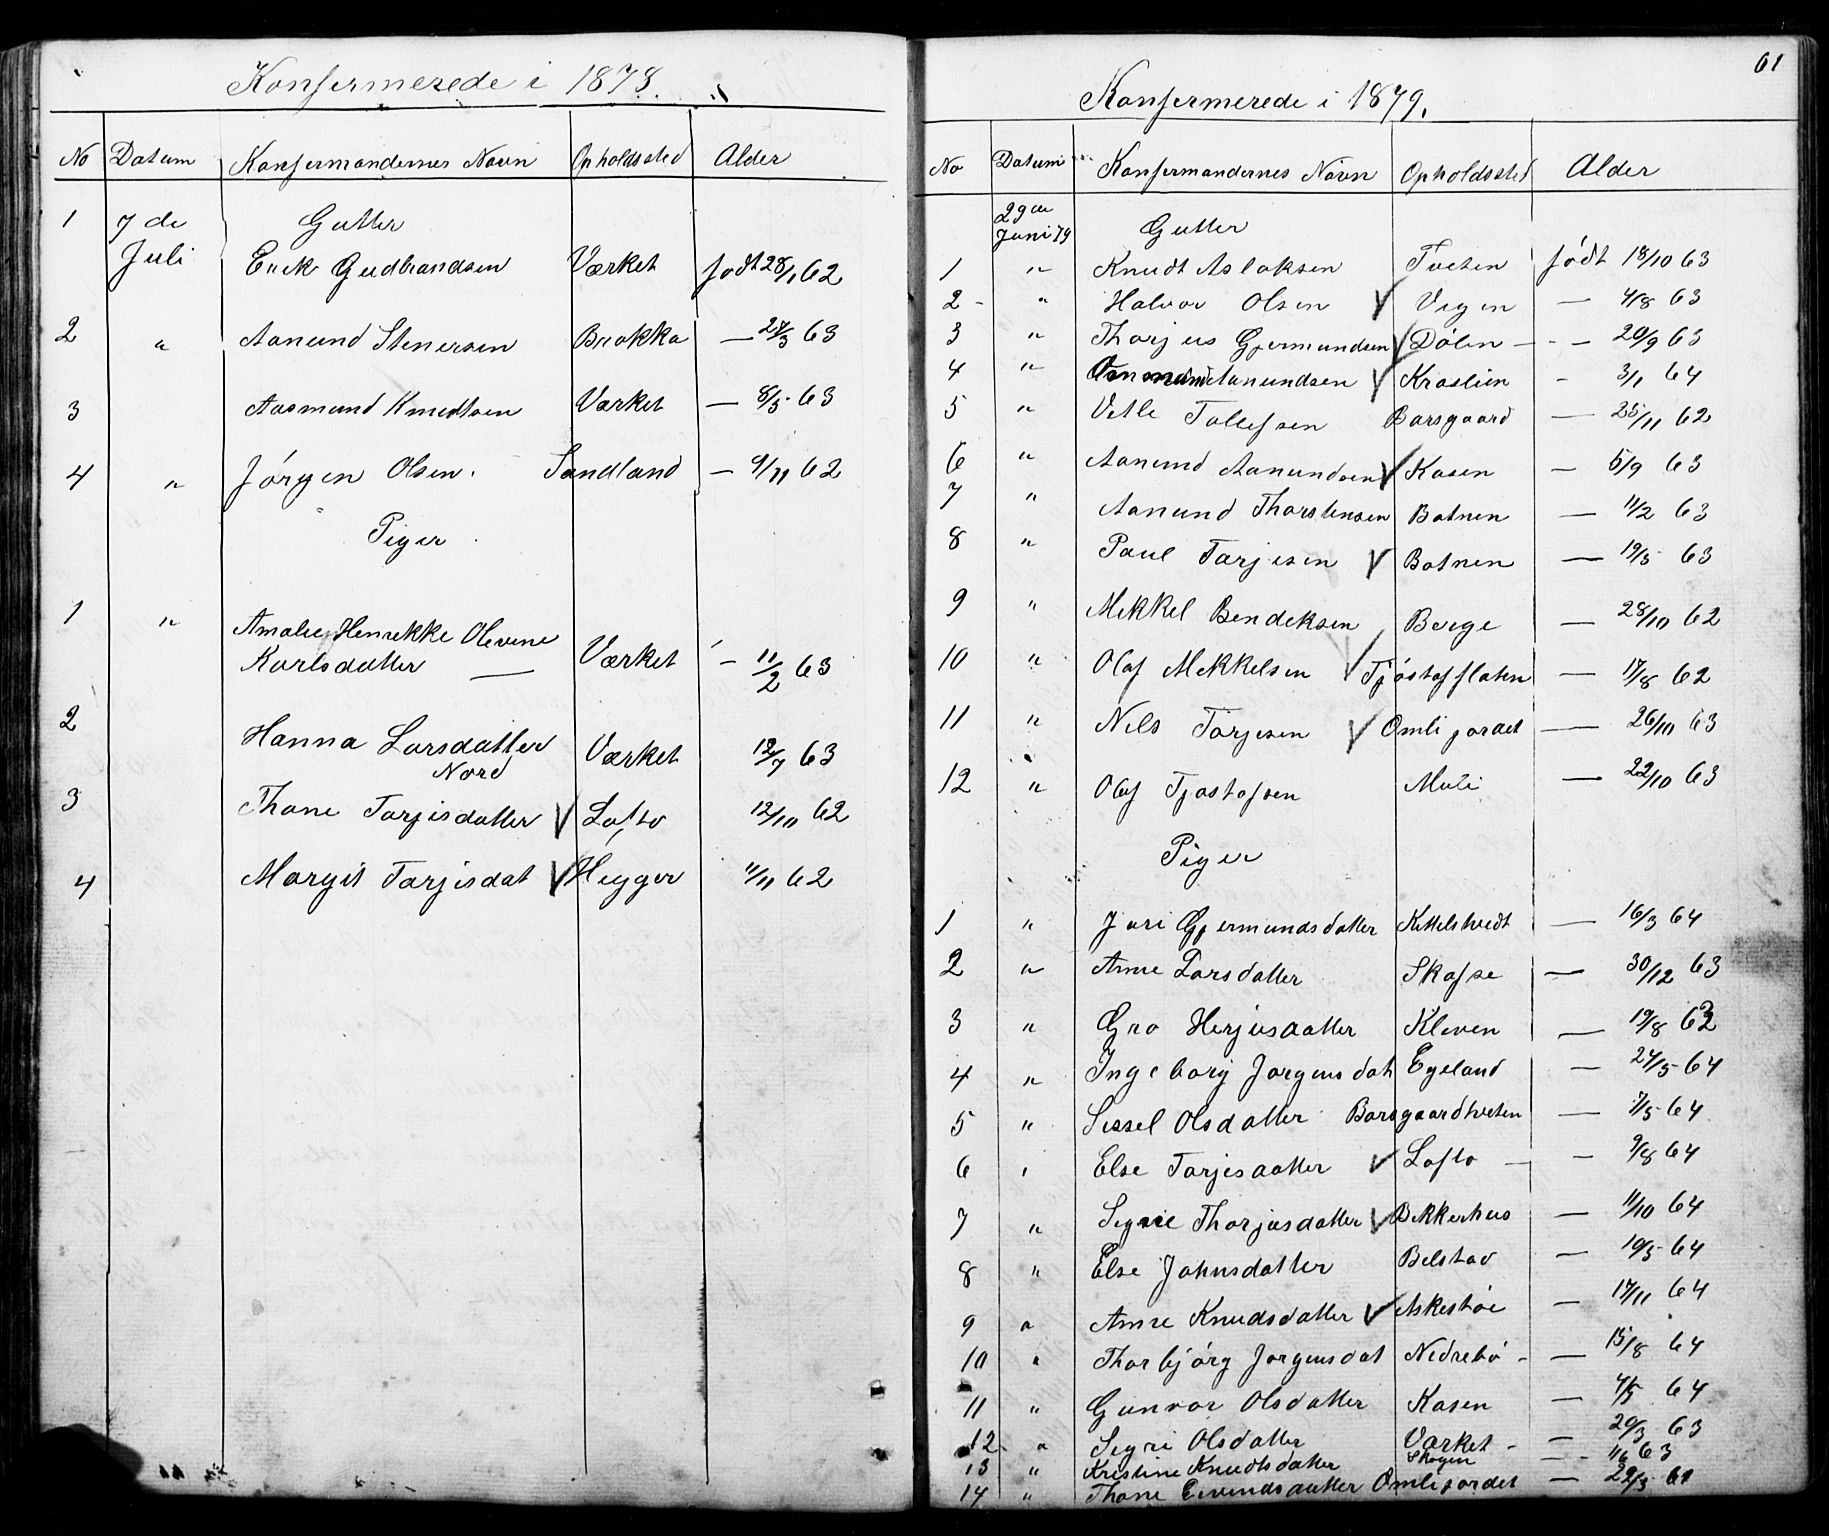 Konfermerede i 1878.
No Datum Konfermandernes Navn Opholdssted Alder
1 7de Gutter
Juli Erik Gudbrandsen Værket født 28/1 62
2 " Aanund Stenersen Brokka — 27/3 63
3 Aasmund Knudtsen Værket — 8/5 63
4 " Jørgen Olsen. Sandland — 9/11 62
Piger
1 " Amalie Henrekke Olevine
Karlsdatter — Værket — 11/2 63
2 Hanna Larsdatter Værket 12/7 63
Nord
3 Thone Tarjisdatter V Lofto 12/10 62
4 Margit Tarjisdat V Heggor 11/11 62
61
Konfermerede i 1879.
No Datum Konfermandernes Navn Opholdssted Alder
29de
Juni 79 Gutter
1 " Knudt Aslaksen Tveten født 18/10 63
2 - " Halvor Olsen V Vigen — 4/8 63
3 " Thorjus Gjermundsen V Dölen - - - 20/9 63
4 " Aanundsen V Kroslien - 3/1 64
5 " Vetle Tollefsen Borsgaard — 25/11 62
6 " Aanund Aanundsen V Kasen — 5/9 63
7 " Aanund Thorstensen Botnen — 11/2 63
8 " Paul Tarjesen V Botnen — 19/5 63
9 " Mekkel Bendeksen Berge — 28/10 62
10 " Olaf Mekkelsen V Tjöstofflaten — 17/8 62
11 " Nels Tarjesen V Omlijordet — 26/10 63
12 " Olaf Tjostofsen Moli — 22/10 63
Piger
1 " Juri Gjermundsdatter Kettelstvedt — 16/3 64
2 " Anne Larsdatter Skafse — 30/12 63
3 " Gro Herjusdatter Kleven — 19/8 62
4 " Ingeborg Jorgensdat Egeland — 24/5 64
5 " Sessel Olsdatter Borsgaardtveten — 7/5 64
6 " Else Tarjesdatter V Lofto — - 9/8 64
7 " Segne Thorjusdatter V Bekkerhus — 11/10 64
8 " Else Johnsdatter Belstad — 10/5 64
9 " Anne Knudsdatter V Askestöe — 17/11 64
10 " Thorbjörg Jorgensdat Nedrebö - — 15/8 64
11 " Gunvor Olsdatter Kasen — 4/5 64
12 " Segri Olsdatter Værket - — 20/3 63
13 " Kristine Knudtsdatter Skogen — - 1/6 63
14 " Thone Eivendsdatter Omlijordet — 22/3 61